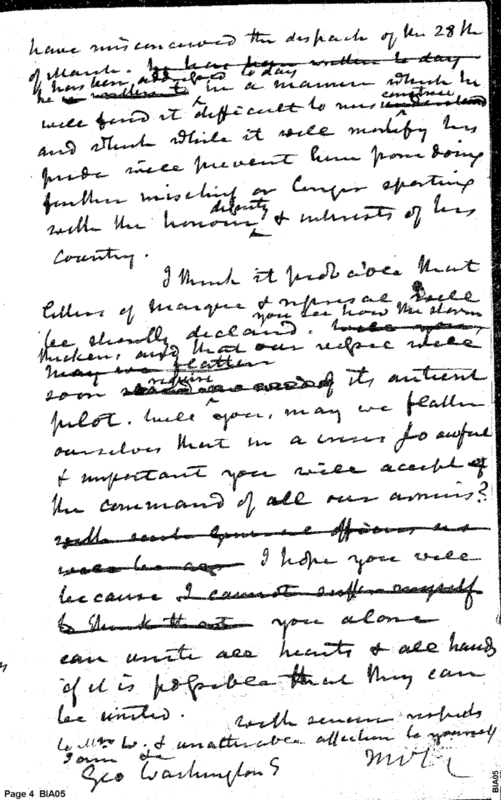 have misconceived the dispatch of the 28th
of March. to have been written to day
it has been addressed to day
he in a manner which he
will find it difficult to mis construe understand
and which while it will mortify his
pride will prevent him from doing
further mischief or longer sporting
with the honour dignity & interests of his
Country.
I think it probable that
letters of marque & reprisal will
be shortly declared. you see how the storm will you,
thickens and that our vessel will
may we flatten
soon require of its antient
pilot. will you, may we flatter
ourselves that in a crisis so awful
& important you will accept of
the command of all our armies?
with such General officers as
will be I hope you will
because I cannot suffer myself
to think that you alone
can unite all hearts & all hands
if it is possible that they can
be united.
with sincere respects
to Mrs W. & unalterable affection to yourself
I am &c
Geo Washington
Page 4 BIA05
BIA05